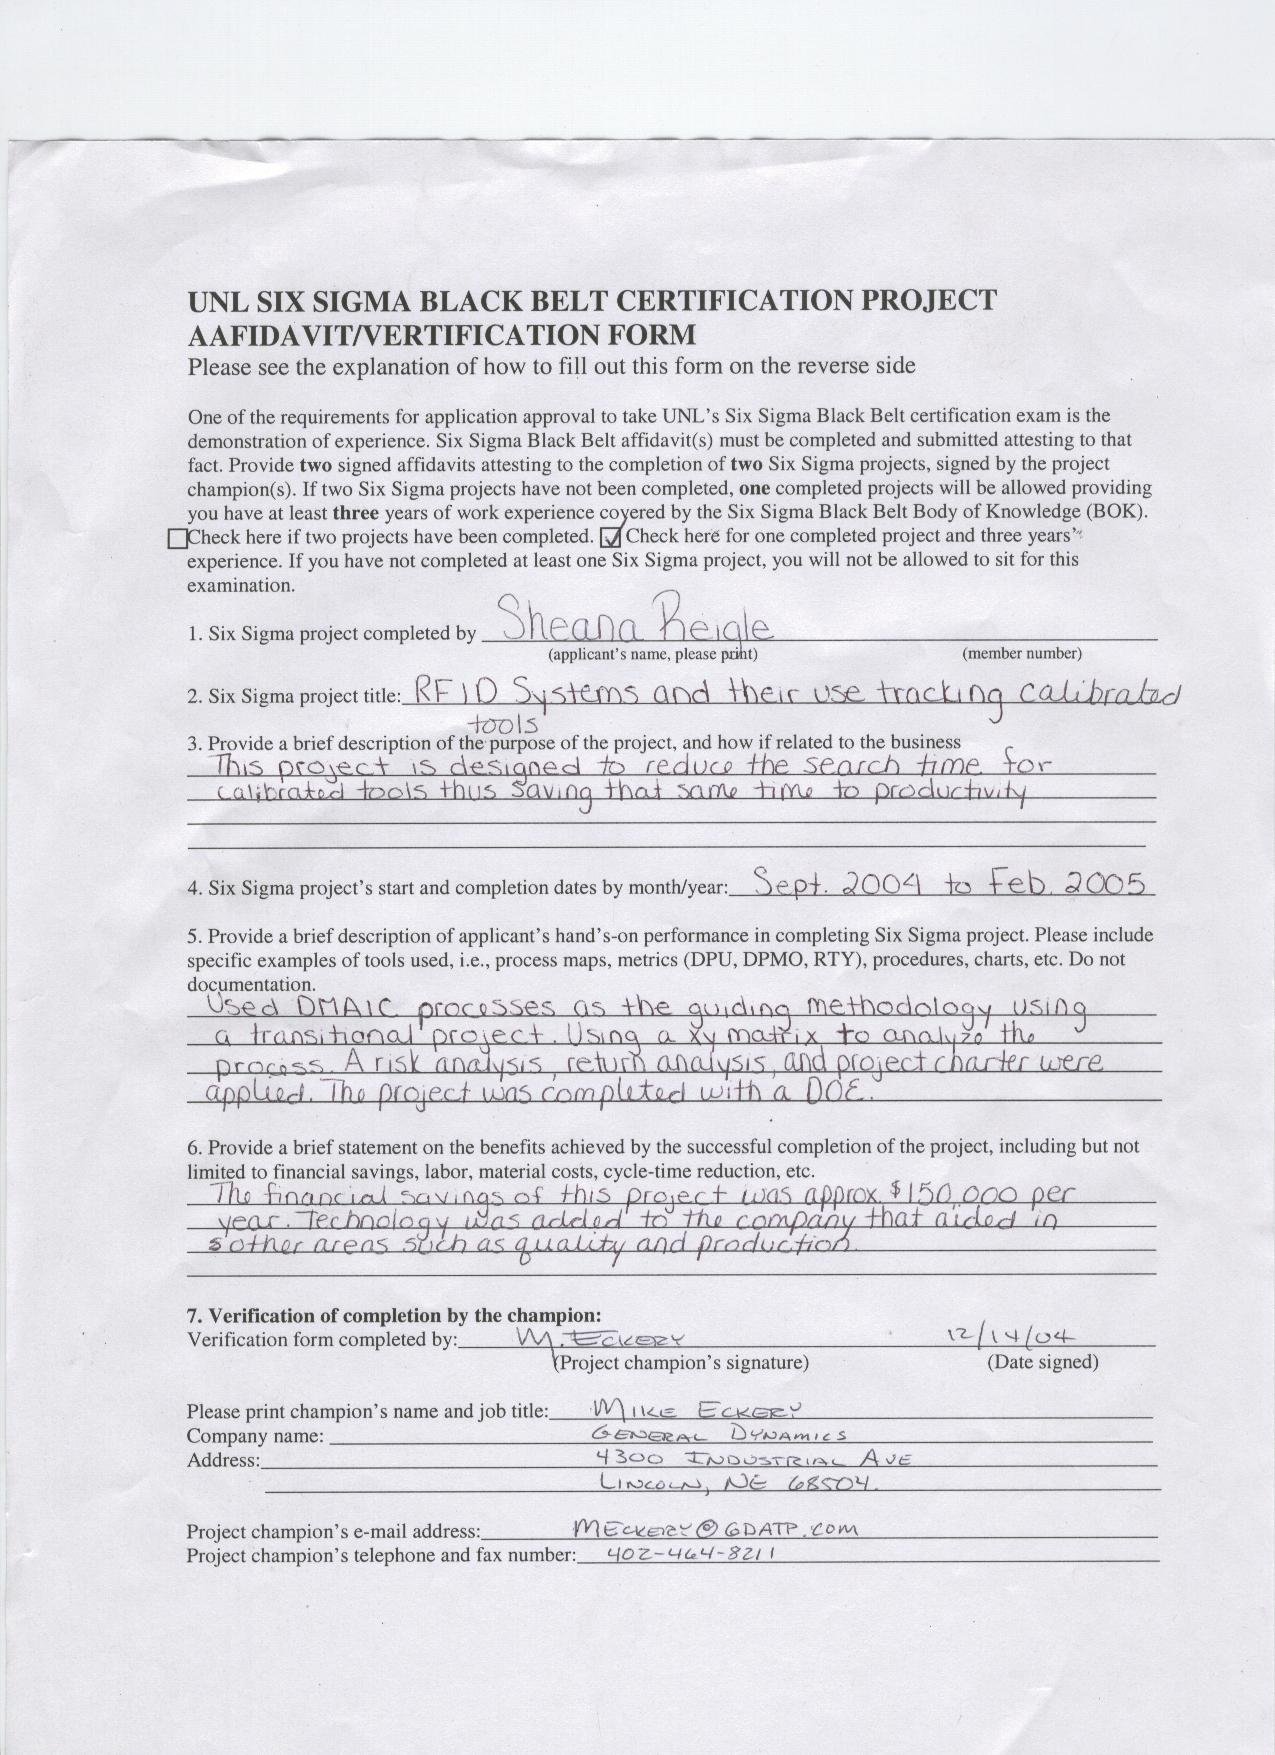 UNL SIX SIGMA BLACK BELT CERTIFICATION PROJECT
AAFIDAVIT/VERTIFICATION FORM
Please see the explanation of how to fill out this form on the reverse side
One of the requirements for application approval to take UNL's Six Sigma Black Belt certification exam is the
demonstration of experience. Six Sigma Black Belt affidavit(s) must be completed and submitted attesting to that
fact. Provide two signed affidavits attesting to the completion of two Six Sigma projects, signed by the project
champion(s). If two Six Sigma projects have not been completed, one completed projects will be allowed providing
you have at least three years of work experience covered by the Six Sigma Black Belt Body of Knowledge (BOK).
Check here if two projects have been completed. Check here for one completed project and three years'
experience. If you have not completed at least one Six Sigma project, you will not be allowed to sit for this
examination.
1. Six Sigma project completed by Sheana Reigle
(applicant's name, please print) (member number)
2. Six Sigma project title: RFID Systems and their use tracking calibrated
tools
3. Provide a brief description of the purpose of the project, and how if related to the business
This project is designed to reduce the search time for
calibrated tools thus saving that same time to productivity
4. Six Sigma project's start and completion dates by month/year: Sept. 2004 to Feb. 2005
5. Provide a brief description of applicant's hand's-on performance in completing Six Sigma project. Please include
specific examples of tools used, i.e., process maps, metrics (DPU, DPMO, RTY), procedures, charts, etc. Do not
documentation.
Used DMAIC processes as the guiding methodology using
a transitional project. Using a xy matrix to analyze the
process. A risk analysis, return analysis, and project charter were
applied. The project was completed with a DOE.
6. Provide a brief statement on the benefits achieved by the successful completion of the project, including but not
limited to financial savings, labor, material costs, cycle-time reduction, etc.
The financial savings of this project was approx. $150,000 per
year. Technology was added to the company that aided in
other areas such as quality and production.
7. Verification of completion by the champion:
Verification form completed by: M. Eckery 12/14/04
(Project champion's signature) (Date signed)
Please print champion's name and job title: Mike Eckery
Company name: General Dynamics
Address: 4300 Industrial Ave
Lincoln, NE 68504
Project champion's e-mail address: MEckery@GDATP.com
Project champion's telephone and fax number: 402-464-8211